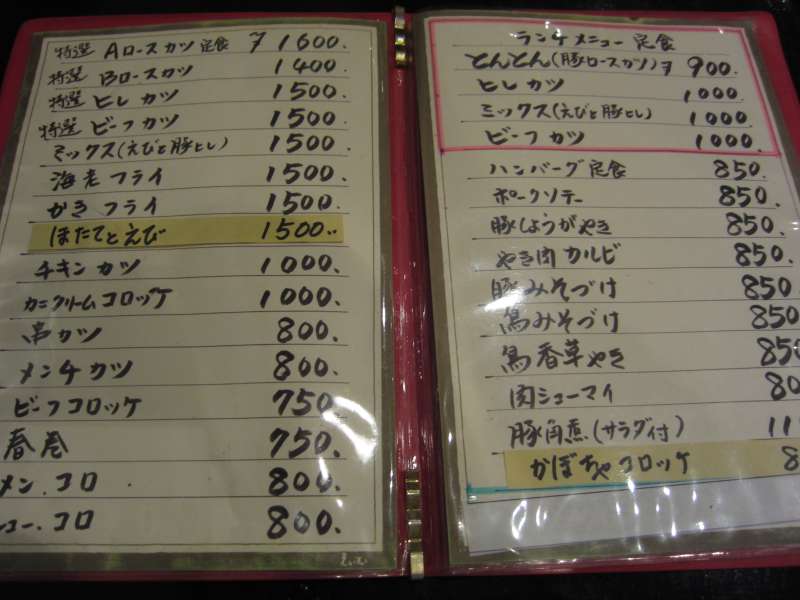 特選 Aロースカツ 定食 ¥1600.
特選 Bロースカツ 1400.
特選 ヒレカツ 1500.
特選 ビーフカツ 1500.
ミックス(えびと豚ヒレ) 1500.
海老フライ 1500.
かきフライ 1500.
ほたてとえび 1500..
チキンカツ 1000.
カニクリームコロッケ 1000.
串カツ 800.
メンチカツ 800.
ビーフコロッケ 750.
春巻 750.
メン.コロ 800.
ュー.コロ 800.
ランチメニュー定食
とんとん(豚ロースカツ)¥900.
ヒレカツ 1000.
ミックス(えびと豚ヒレ) 1000.
ビーフカツ 1000.
ハンバーグ定食 850.
ポークソテー 850.
豚しょうがやき 850.
やき肉カルビ 850.
豚みそづけ 850
鳥みそづけ 850
鳥香草やき 850
肉シューマイ 80
豚角煮(サラダ付) 11
かぼちゃコロッケ 8